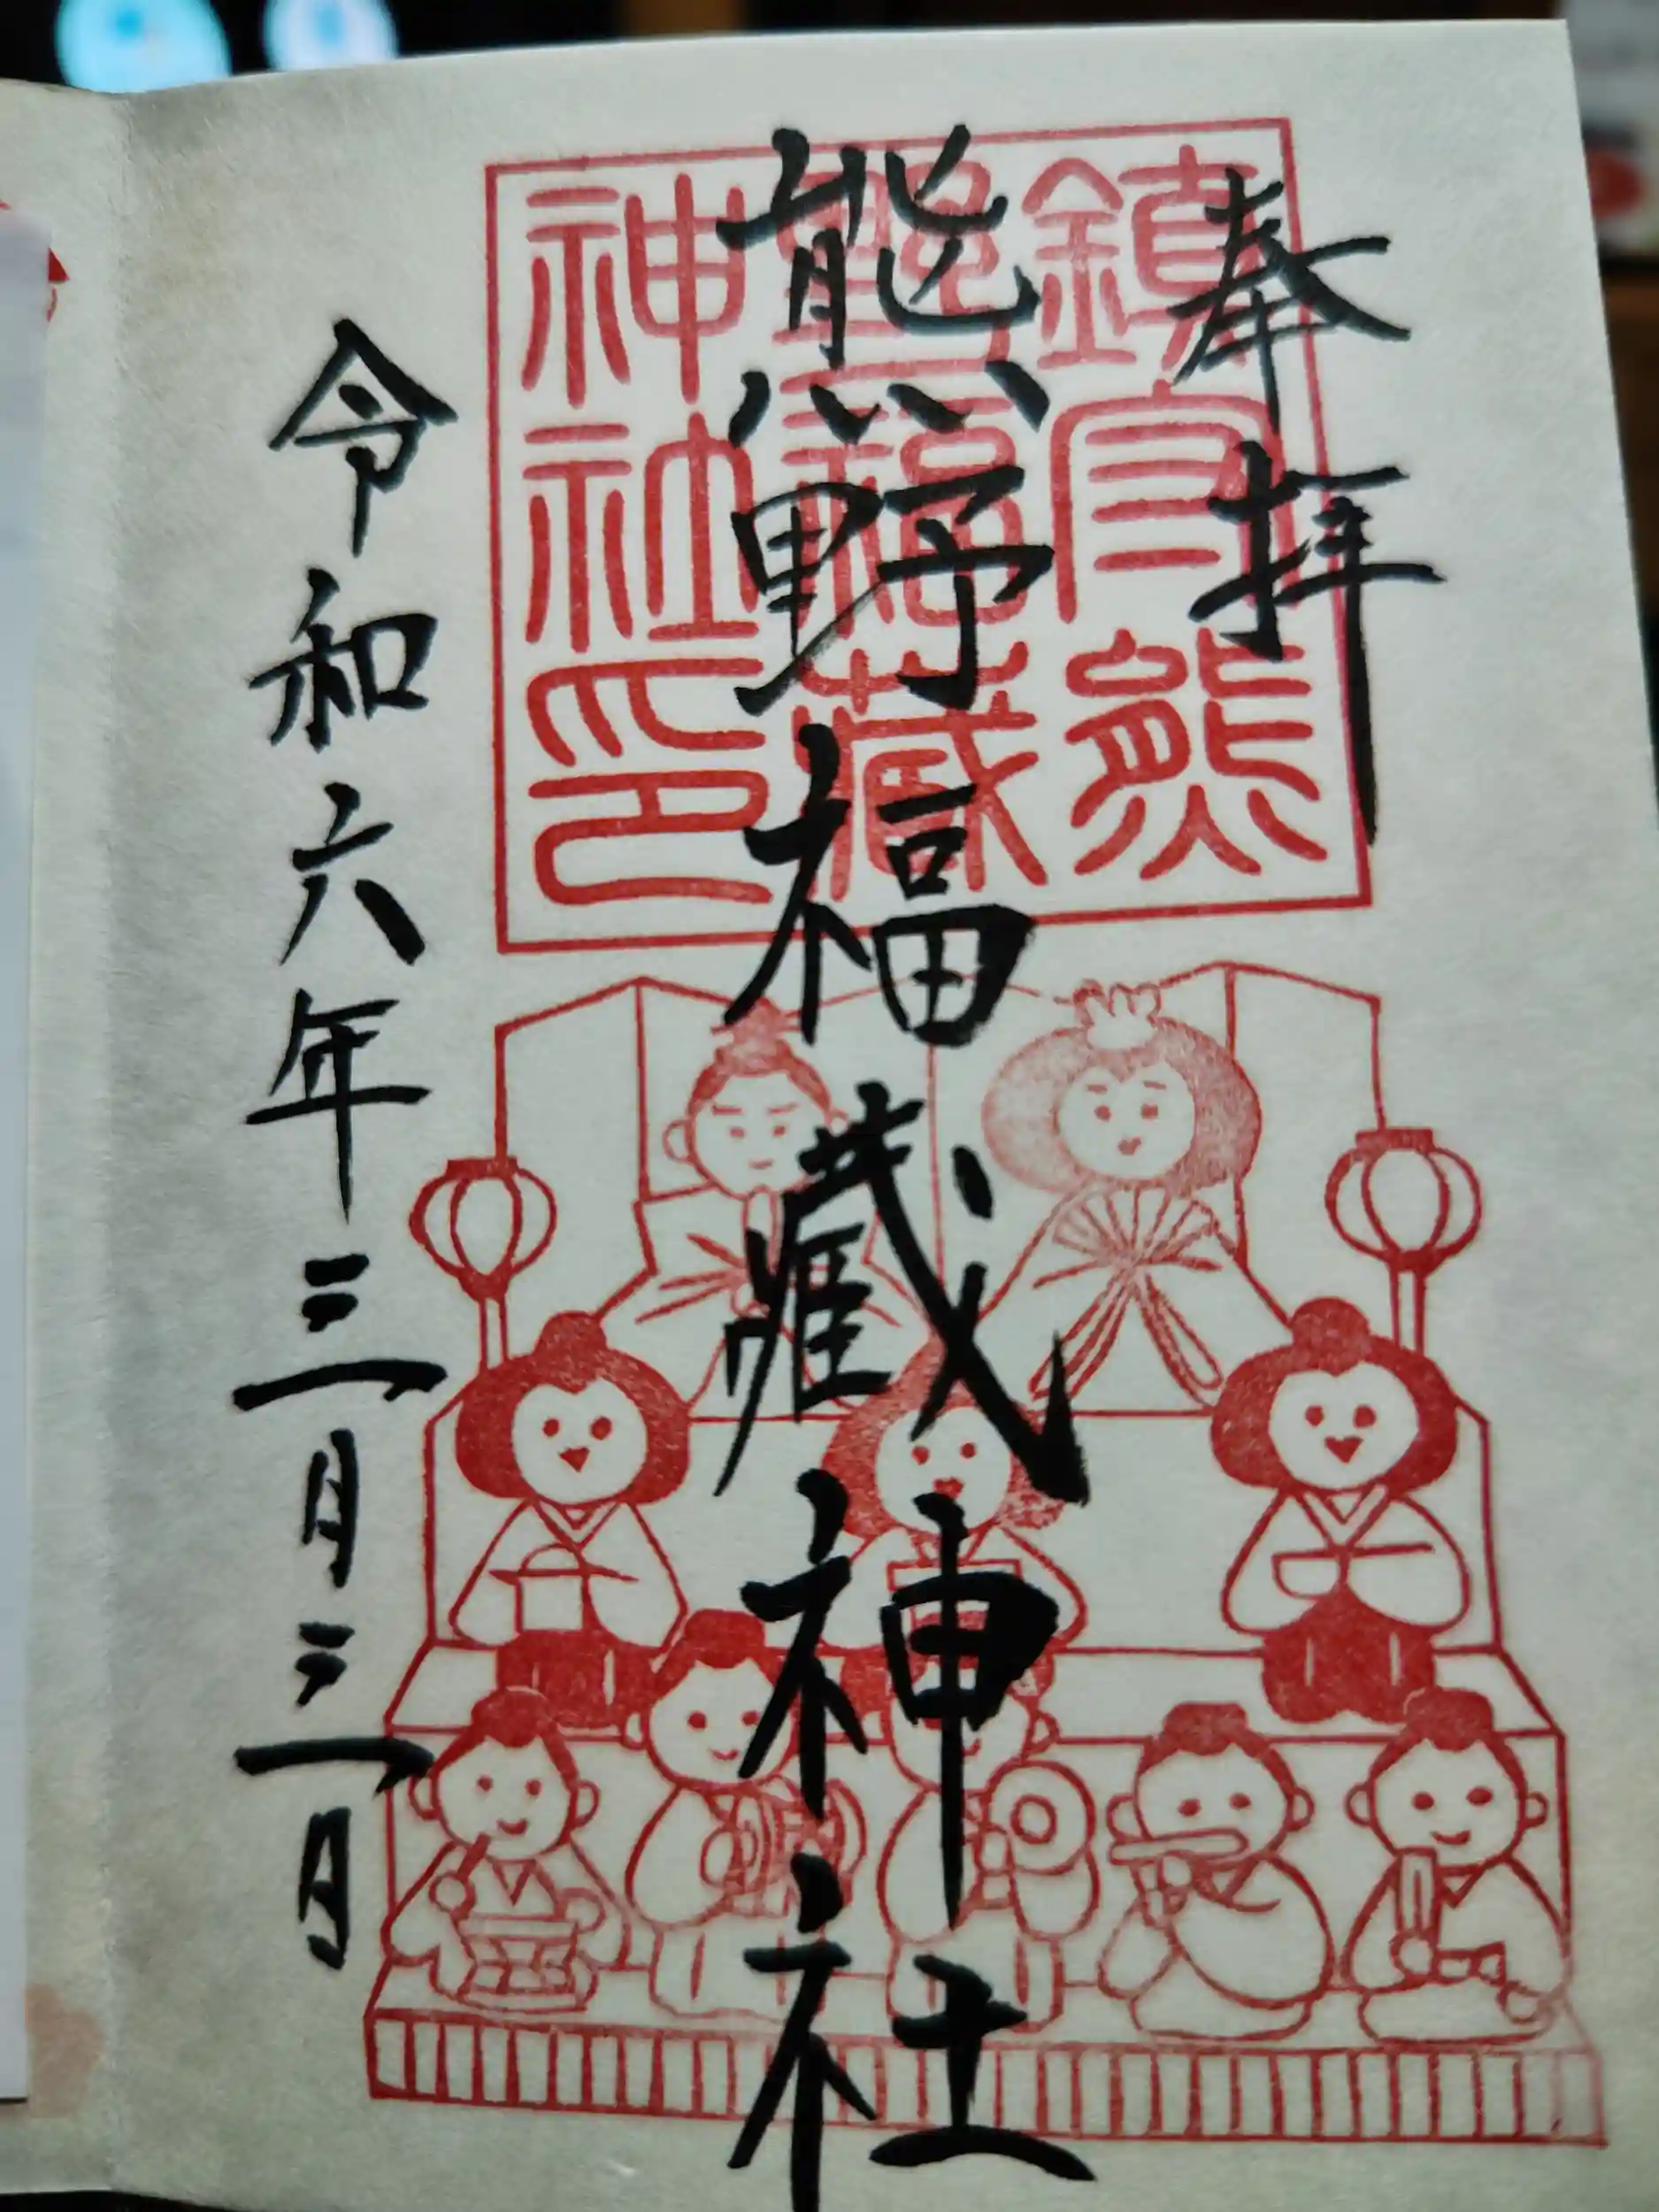 奉拝
熊野福藏神社
令和六年三月三日
鎮守熊
野福藏
神社印